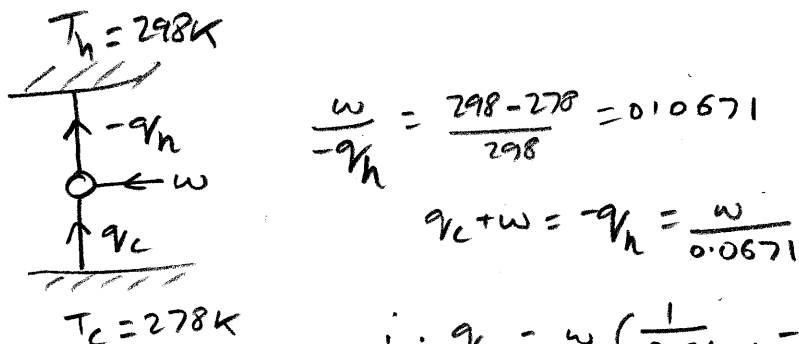 T_h = 298K
-q_h
w
q_c
T_c = 278K
w / -q_h = 298-278 / 298 = 0.0671
q_c + w = -q_h = w / 0.0671
∴ q_c = w ( 1 /